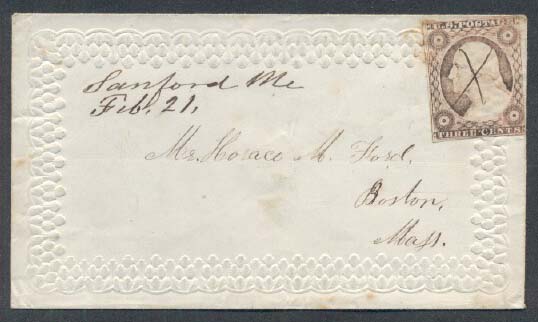 U.S. POSTAGE
Sanford Me
Feb. 21,
THREE CENTS
Mr. Horace M. Ford.
Boston,
Mass.